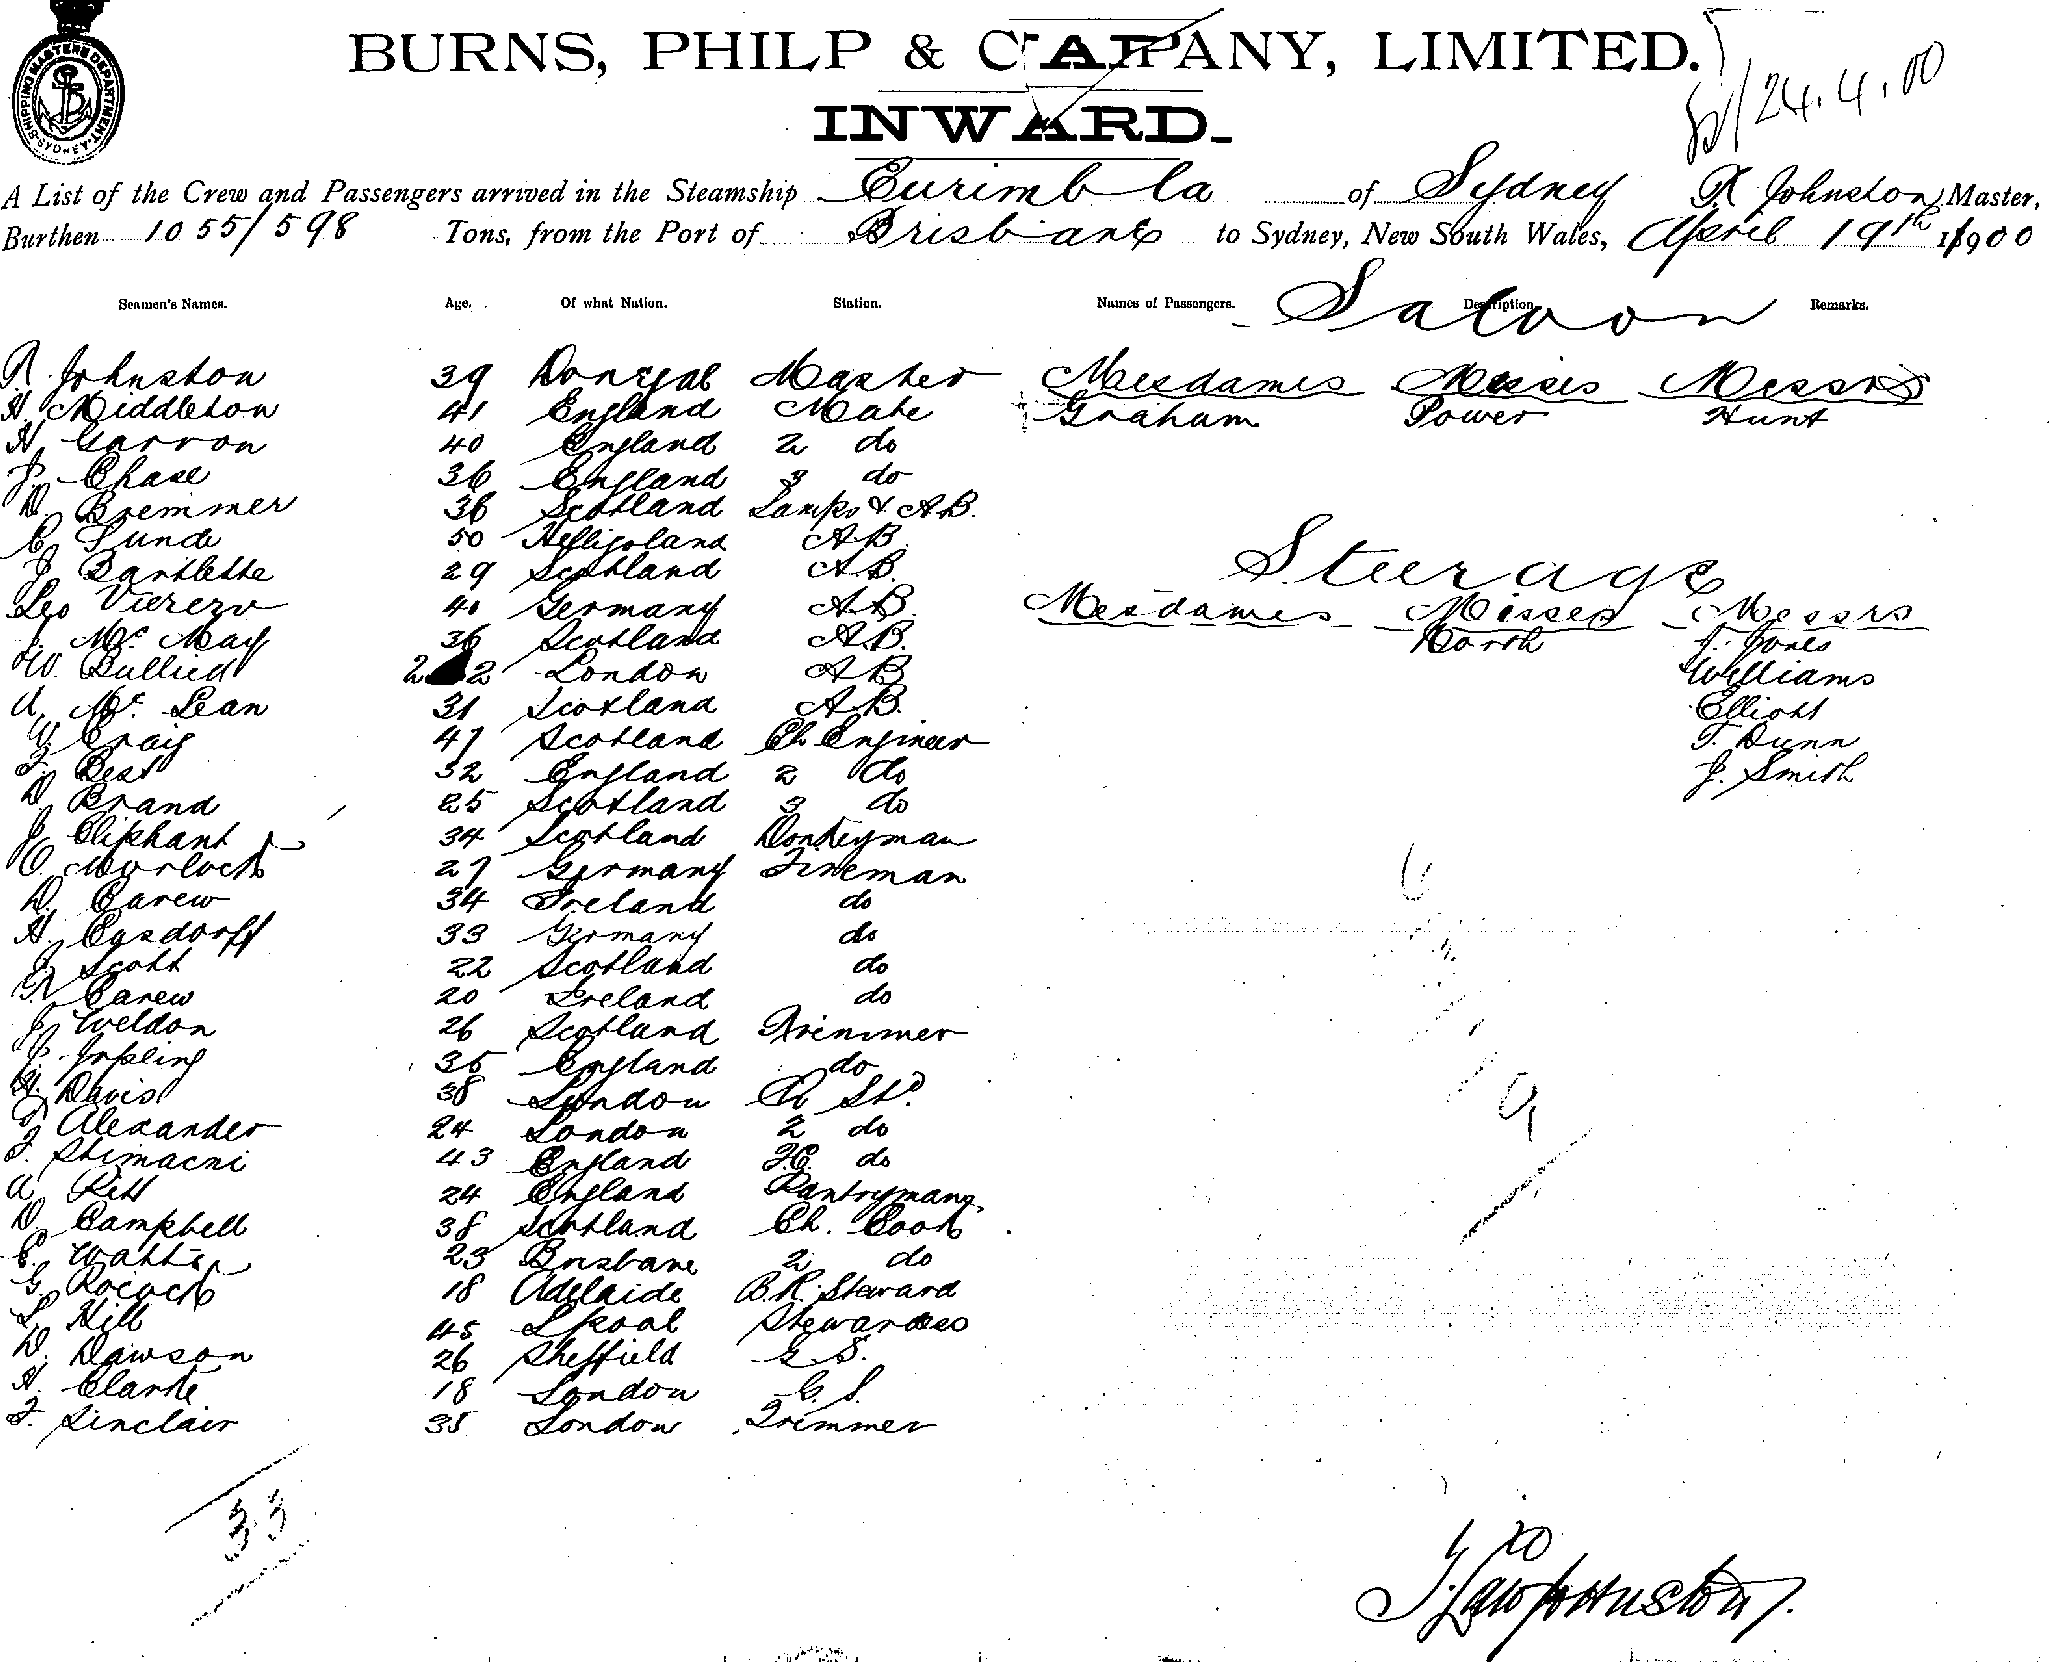 BURNS, PHILP & COMPANY, LIMITED.
24.4.00
INWARD.
A List of the Crew and Passengers arrived in the Steamship Eurimbla of Sydney R Johnston Master,
Burthen 1055/598 Tons, from the Port of Brisbane to Sydney, New South Wales, April 19th 1900
Seamen's Names. Age. Of what Nation. Station. Names of Passengers. Description Remarks.
Saloon
R Johnston 39 Donegal Master Mesdames Misses Messrs
H Middleton 41 England Mate Graham Power Hunt
H Garron 40 England 2 do
J. Chase 36 England 3 do
D. Bremmer 36 Scotland Lamps & A.B.
C Lunde 50 Helligoland A.B.
J Bartlette 29 Scotland A.B. Steerage
Leo 40 Germany A.B. Mesdames Misses Messrs
J. McMay 36 Scotland A.B. North J. Jones
W. Bullied 22 London A.B. Williams
A. McLean 31 Scotland A.B. Elliott
Craig 47 Scotland Ch Engineer T. Dunn
F Best 32 England 2 do J. Smith
D Brand 25 Scotland 3 do
J Oliphant 34 Scotland Donkeyman
O Morlock 27 Germany Fireman
D. Carew 34 Ireland do
H. Egsdorff 33 Germany do
J Scott 22 Scotland do
Carew 20 Ireland do
J Weldon 26 Scotland Trimmer
J. Jopling 35 England do
H. Davis 38 London Ch Std.
Alexander 24 London 2 do
F. Stimacni 43 England F.C. do
A Pitt 24 England Pantryman
D. Campbell 38 Scotland Ch. Cook
C. Watts 23 Brisbane 2 do
G Pocock 18 Adelaide B.R. Steward
L. Hill 45 L'pool Stewardess
D. Dawson 26 Sheffield G S.
H. Clarke 18 London G. S.
F. Sinclair 35 London Trimmer
33
6
9
Johnston